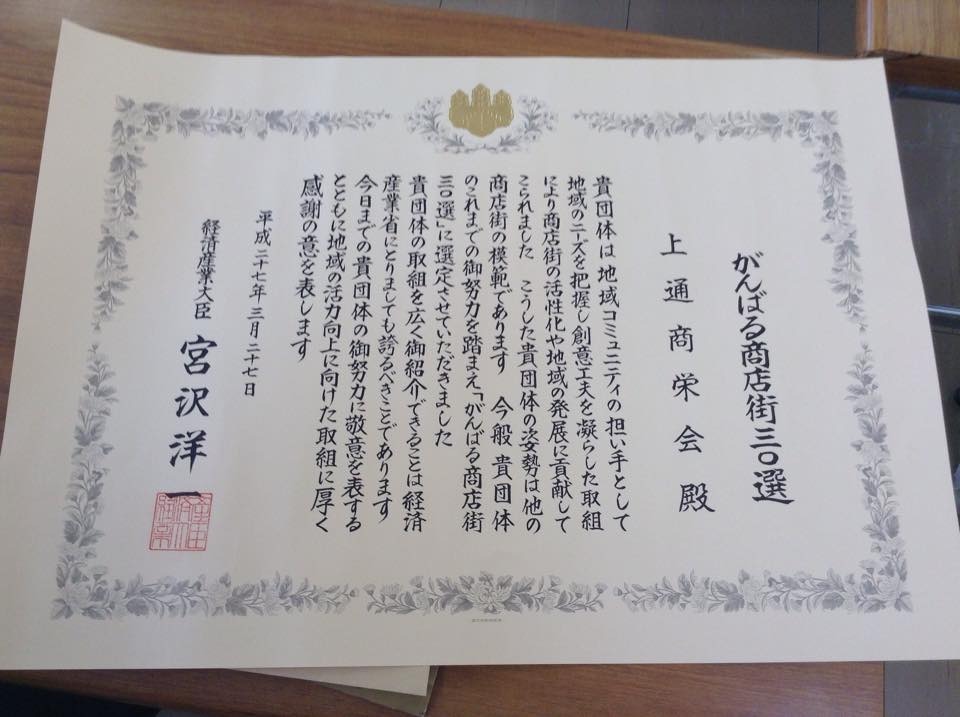 がんばる商店街三〇選
上通商栄会殿
貴団体は地域コミュニティの担い手として
地域のニーズを把握し創意工夫を凝らした取組
により商店街の活性化や地域の発展に貢献して
こられました　こうした貴団体の姿勢は他の
商店街の模範であります　今般貴団体
のこれまでの御努力を踏まえ「がんばる商店街
三〇選」に選定させていただきました
貴団体の取組を広く御紹介できることは経済
産業省にとりましても誇るべきことであります
今日までの貴団体の御努力に敬意を表する
とともに地域の活力向上に向けた取組に厚く
感謝の意を表します
平成二十七年三月二十七日
経済産業大臣　宮沢洋一